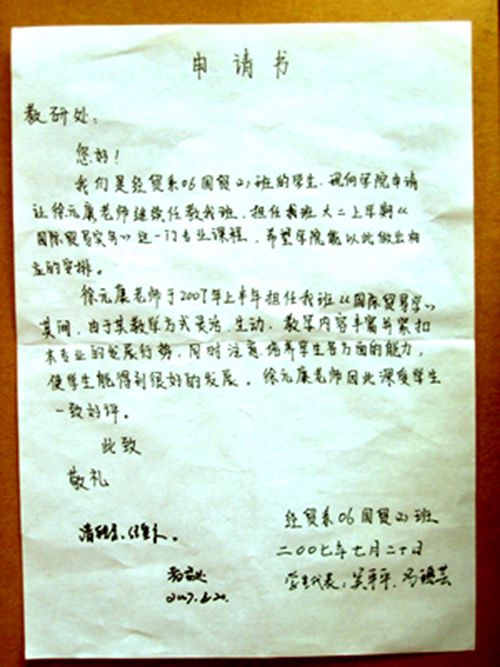 申请书
教研处：
您好！
我们是经贸系06国贸(2)班的学生，现向学院申请
让徐元康老师继续任教我班，担任我班大二上半期《
国际贸易实务》这一门专业课程，希望学院能以此做出相
应的安排。
徐元康老师于2007年上半年担任我班《国际贸易学》，
其间，由于其教学方式灵活、生动，教学内容丰富并紧扣
本专业的发展行势，同时注意培养学生各方面的能力，
使学生能得到很好的发展。徐元康老师因此深受学生
一致好评。
此致
敬礼
经贸系06国贸(2)班
二00七年七月二十日
学生代表：吴平平、冯